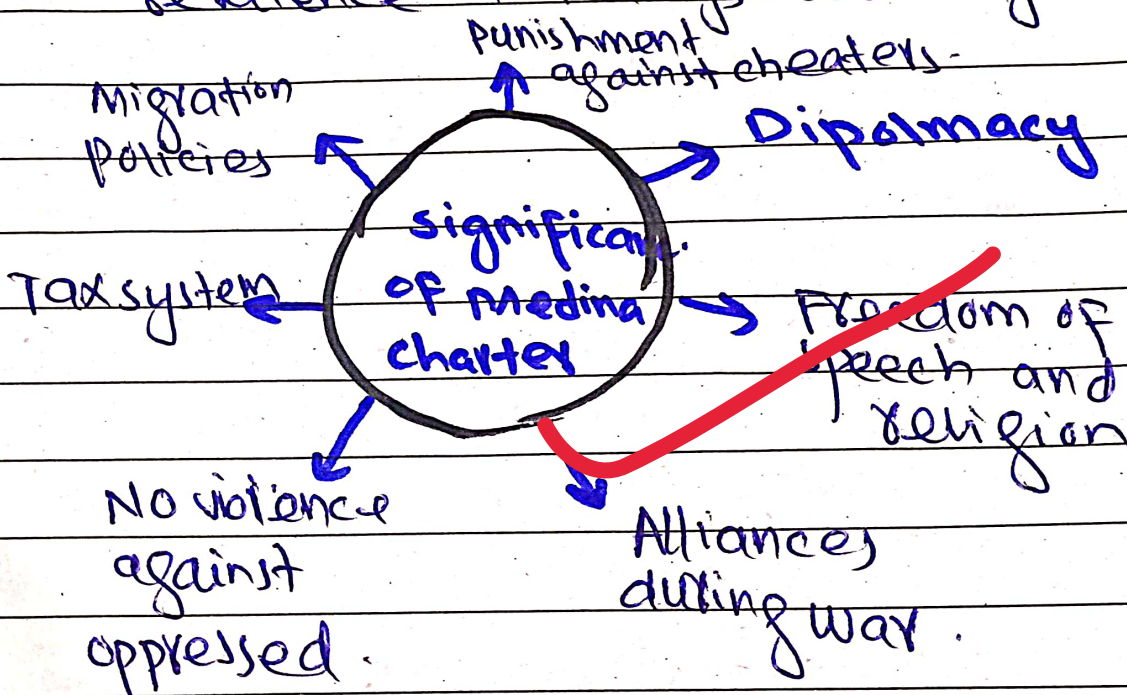 punishment
against cheaters.
Migration
policies
Dipolmacy
significan
of Medina
charter
Tax system
Freedom of
speech and
religion
No violence
against
oppressed.
Alliances
during war.